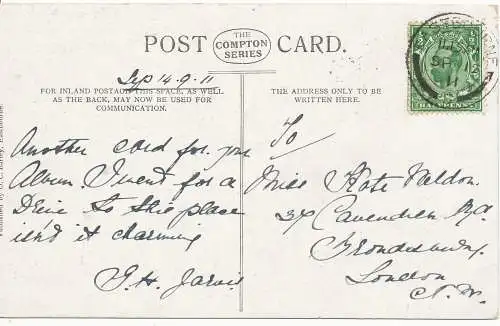 POST CARD.
THE
COMPTON
SERIES
Sep 14.9.11
FOR INLAND POSTAGE THIS SPACE, AS WELL
AS THE BACK, MAY NOW BE USED FOR
COMMUNICATION.
THE ADDRESS ONLY TO BE
WRITTEN HERE.
Another card for your
Album. I went for a
Drive to this place
isn't it charming
G. H. Jarvis
To
Miss Kate Weldon.
Cavendish Rd
Brondesbury.
London
N.W.
HALFPENNY